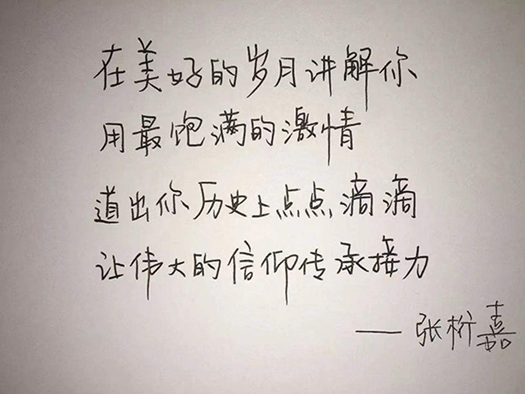 在美好的岁月讲解你
用最饱满的激情
道出你历史上点点滴滴
让伟大的信仰传承接力
——张桁嘉